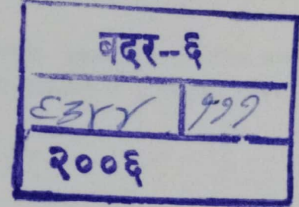 बदर-६
६३४४ १११
२००६